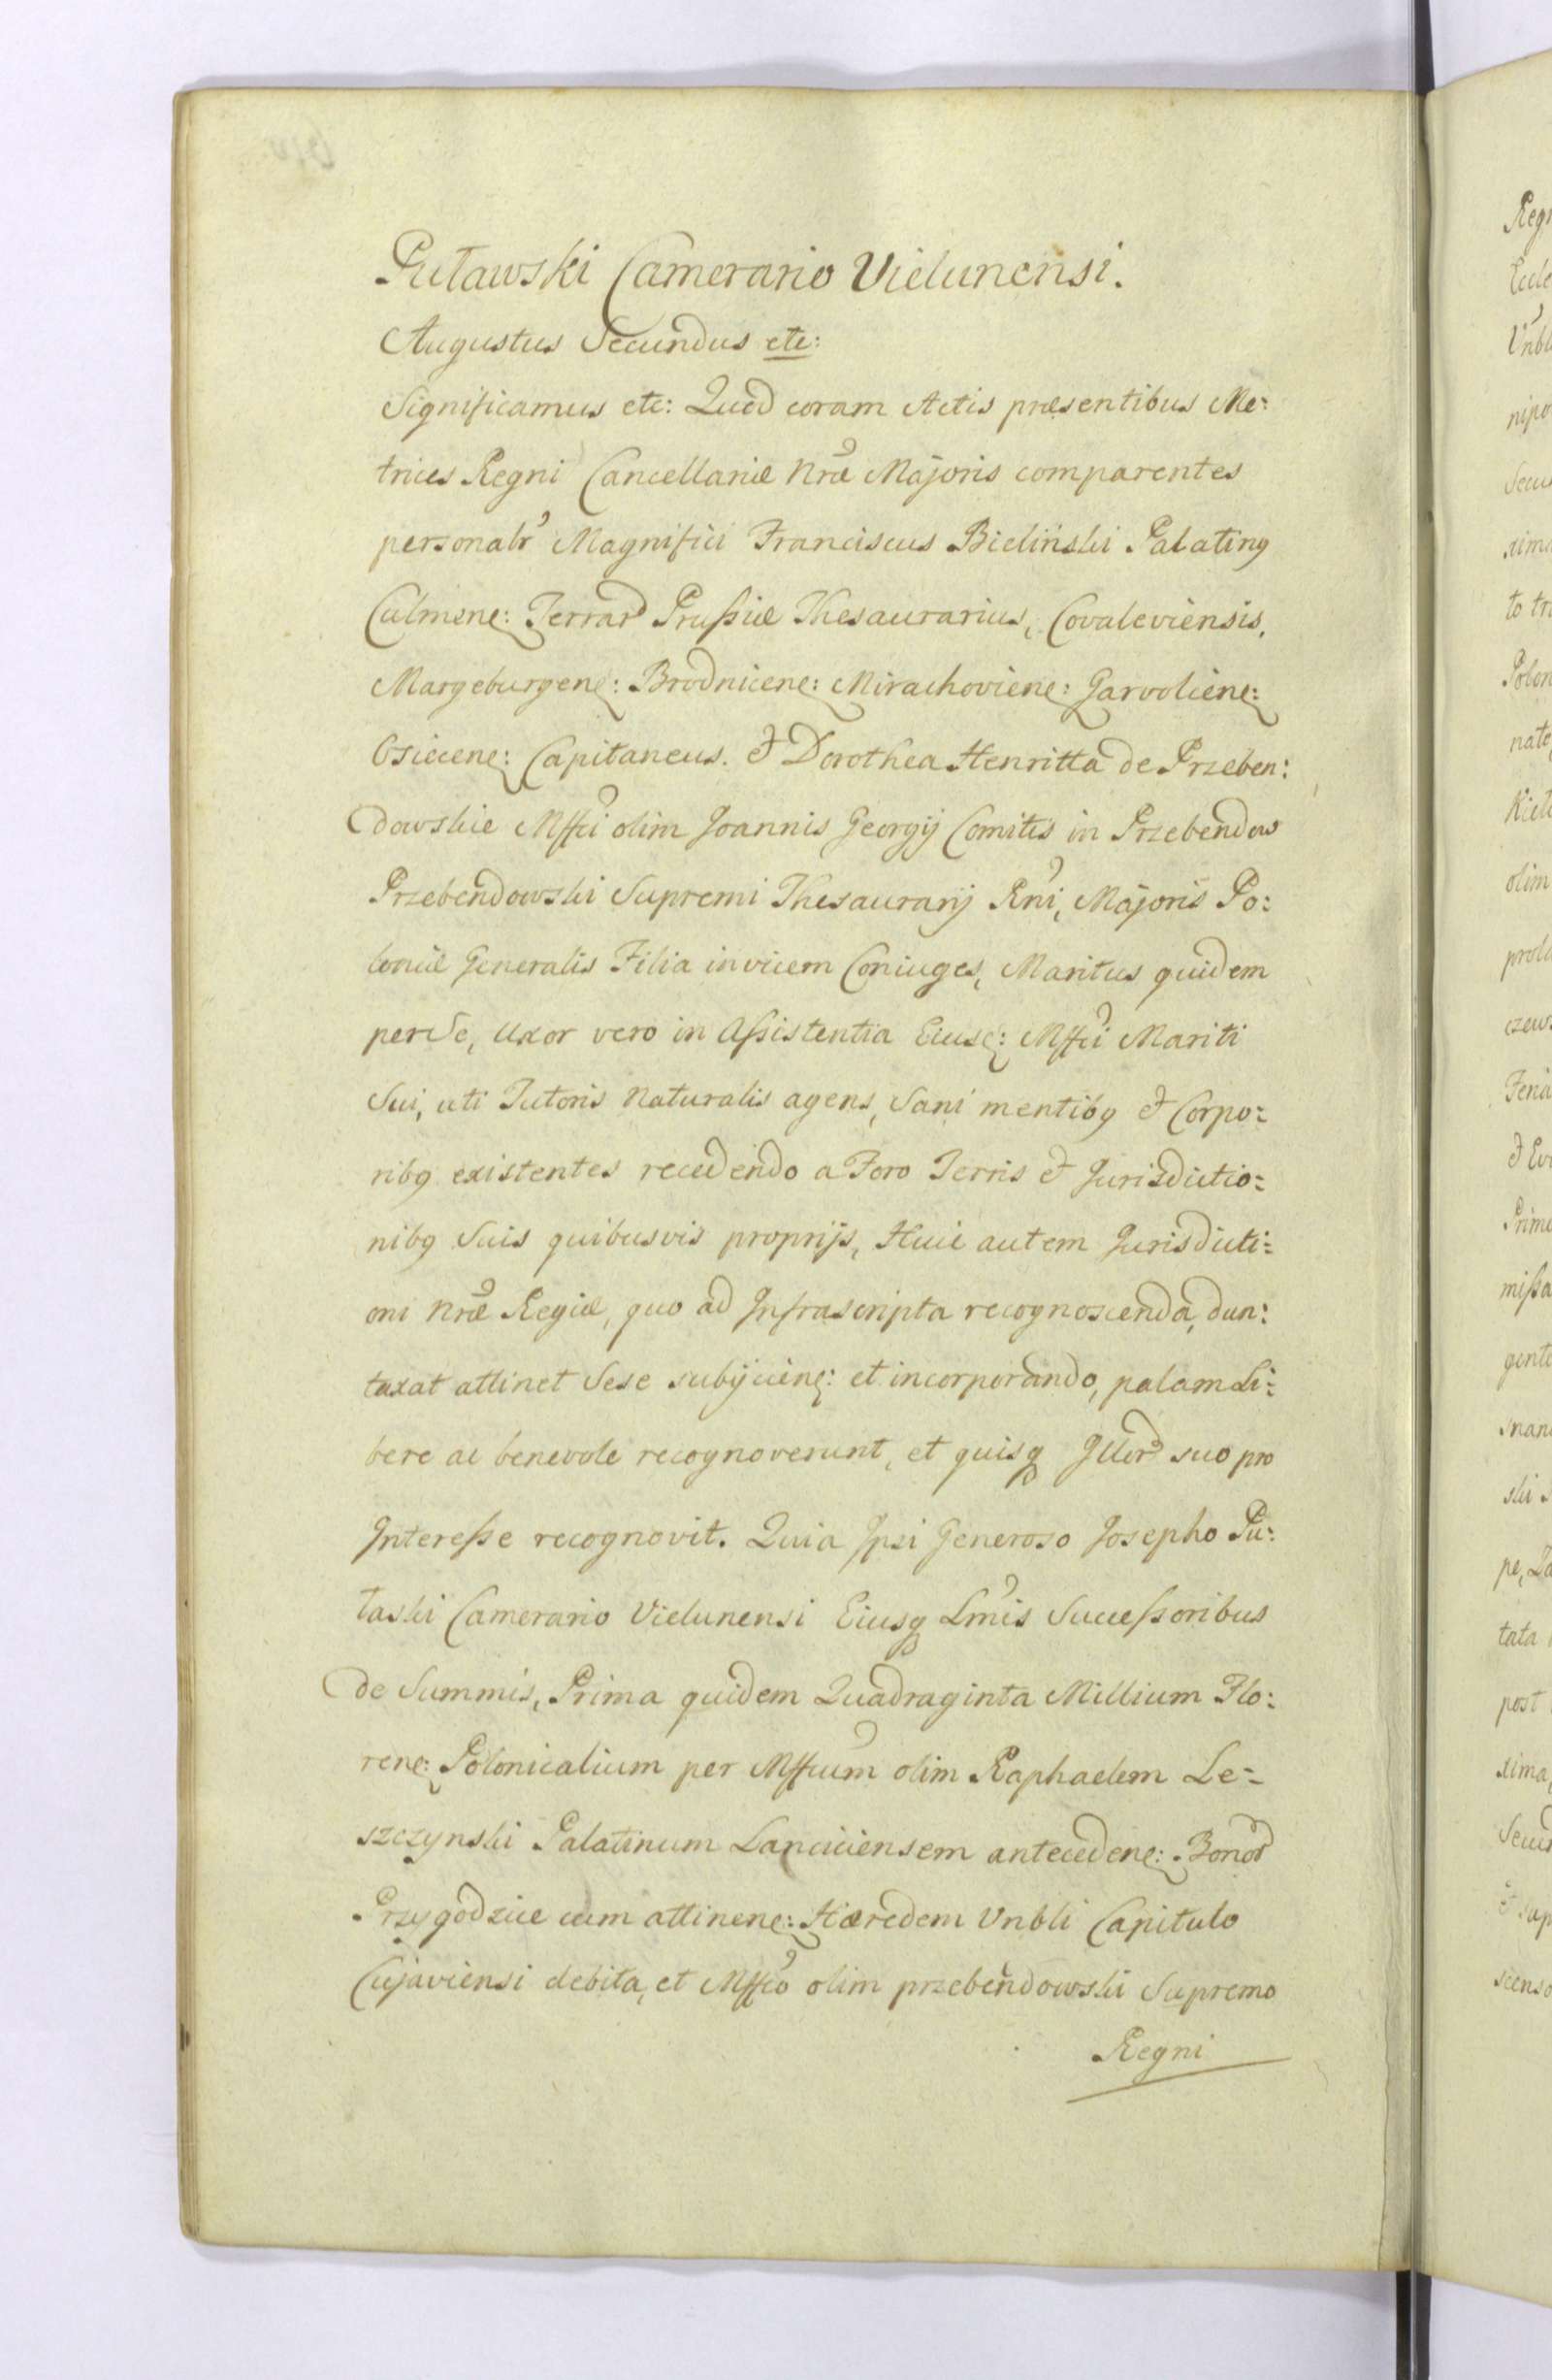 Puławski Camerario Vielunensi.
Augustus Secundus etc:
Significamus etc: Quod coram Actis præsentibus Me:
trices Regni Cancellariæ Nræ Majoris comparentes
personalr Magnifici Franciscus Bieliński Palatinq
Culmene: Terrar Prussiæ Thesaurarius, Covaleviensis,
Margeburgene: Brodnicene: Mirachoviene: Garvoliene:
Osiecene: Capitaneus. et Dorothea Henritta de Przeben:
dowskie Mffci olim Joannis Georgij Comitis in Przebendow
Przebendowski Supremi Thesaurarij Rni, Majoris Po:
loniæ Generalis Filia invicem Coniuges, Maritus quidem
per Se, Uxor vero in Assistentia Eiusd: Mffci Mariti
Sui, uti Tutoris Naturalis agens, Sani mentibq et Corpo:
ribq existentes recedendo a Foro Terris et Jurisdictio:
nibq Suis quibusvis proprijs, Huic autem Jurisdicti:
oni Nræ Regiæ, quo ad Infrascripta recognoscenda, dun:
taxat attinet Sese subijciene: et incorporando, palam Li:
bere ac benevole recognoverunt, et quisq Illor suo pro
Interesse recognovit. Quia Ipsi Generoso Josepho Pu:
łaski Camerario Vielunensi Eiusq Lmis Successoribus
de Summis, Prima quidem Quadraginta Millium Flo:
rene: Polonicalium per Mffcum olim Raphaelem Le:
szczynski Palatinum Lanciciensem antecedene: Bonor
Przygodzice cum attinene: Hæredem Vnbli Capitulo
Cujaviensi debita, et Mffco olim przebendowski Supremo
Regni